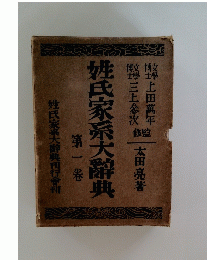 文學博士 上田萬年
文學博士 三上參次
監修
太田亮著
姓氏家系大辭典
第一卷
姓氏家系大辭典刊行會刊